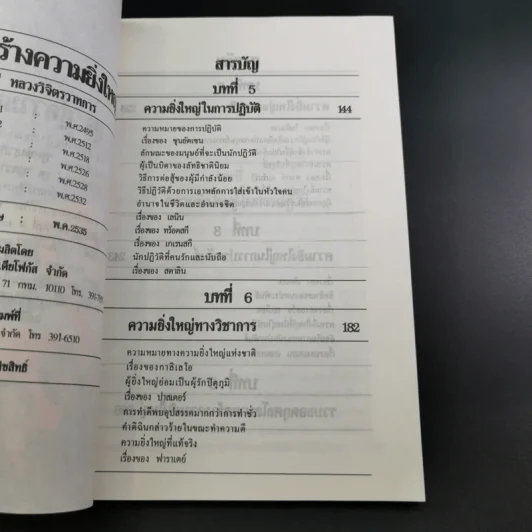 ร้างความยิ่งใหญ่
หลวงวิจิตรวาทการ
: พ.ศ.2495
: พ.ศ.2512
: พ.ศ.2518
: พ.ศ.2526
: พ.ศ.2528
: พ.ศ.2532
: พ.ศ.2535
จำกัด
71 กทม. 10110 โทร
จำกัด โทร 391-6510
ขสิทธิ์
สารบัญ
บทที่ 5
ความยิ่งใหญ่ในการปฏิบัติ 144
ความหมายของการปฏิบัติ
เรื่องของ ซุนยัดเซน
ลักษณะของมนุษย์ที่จะเป็นนักปฏิวัติ
ผู้เป็นบิดาของลัทธิชาตินิยม
วิธีการต่อสู้ของผู้มีกำลังน้อย
วิธีปฏิวัติด้วยการเอาหลักการใส่เข้าในหัวใจคน
อำนาจในชีวิตและอำนาจจิต
เรื่องของ เลนิน
เรื่องของ ทร้อตสกี
เรื่องของ มาเรนสกี
นักปฏิวัติที่คนรักและนับถือ
เรื่องของ สตาลิน
บทที่ 6
ความยิ่งใหญ่ทางวิชาการ 182
ความหมายทางความยิ่งใหญ่แห่งชาติ
เรื่องของกาลิเลโอ
ผู้ยิ่งใหญ่ย่อมเป็นผู้รักปิตุภูมิ
เรื่องของ ปาสเตอร์
การทำดีพบอุปสรรคมากกว่าการทำชั่ว
คำติฉินกล่าวร้ายในขณะทำความดี
ความยิ่งใหญ่ที่แท้จริง
เรื่องของ ฟาราเดย์